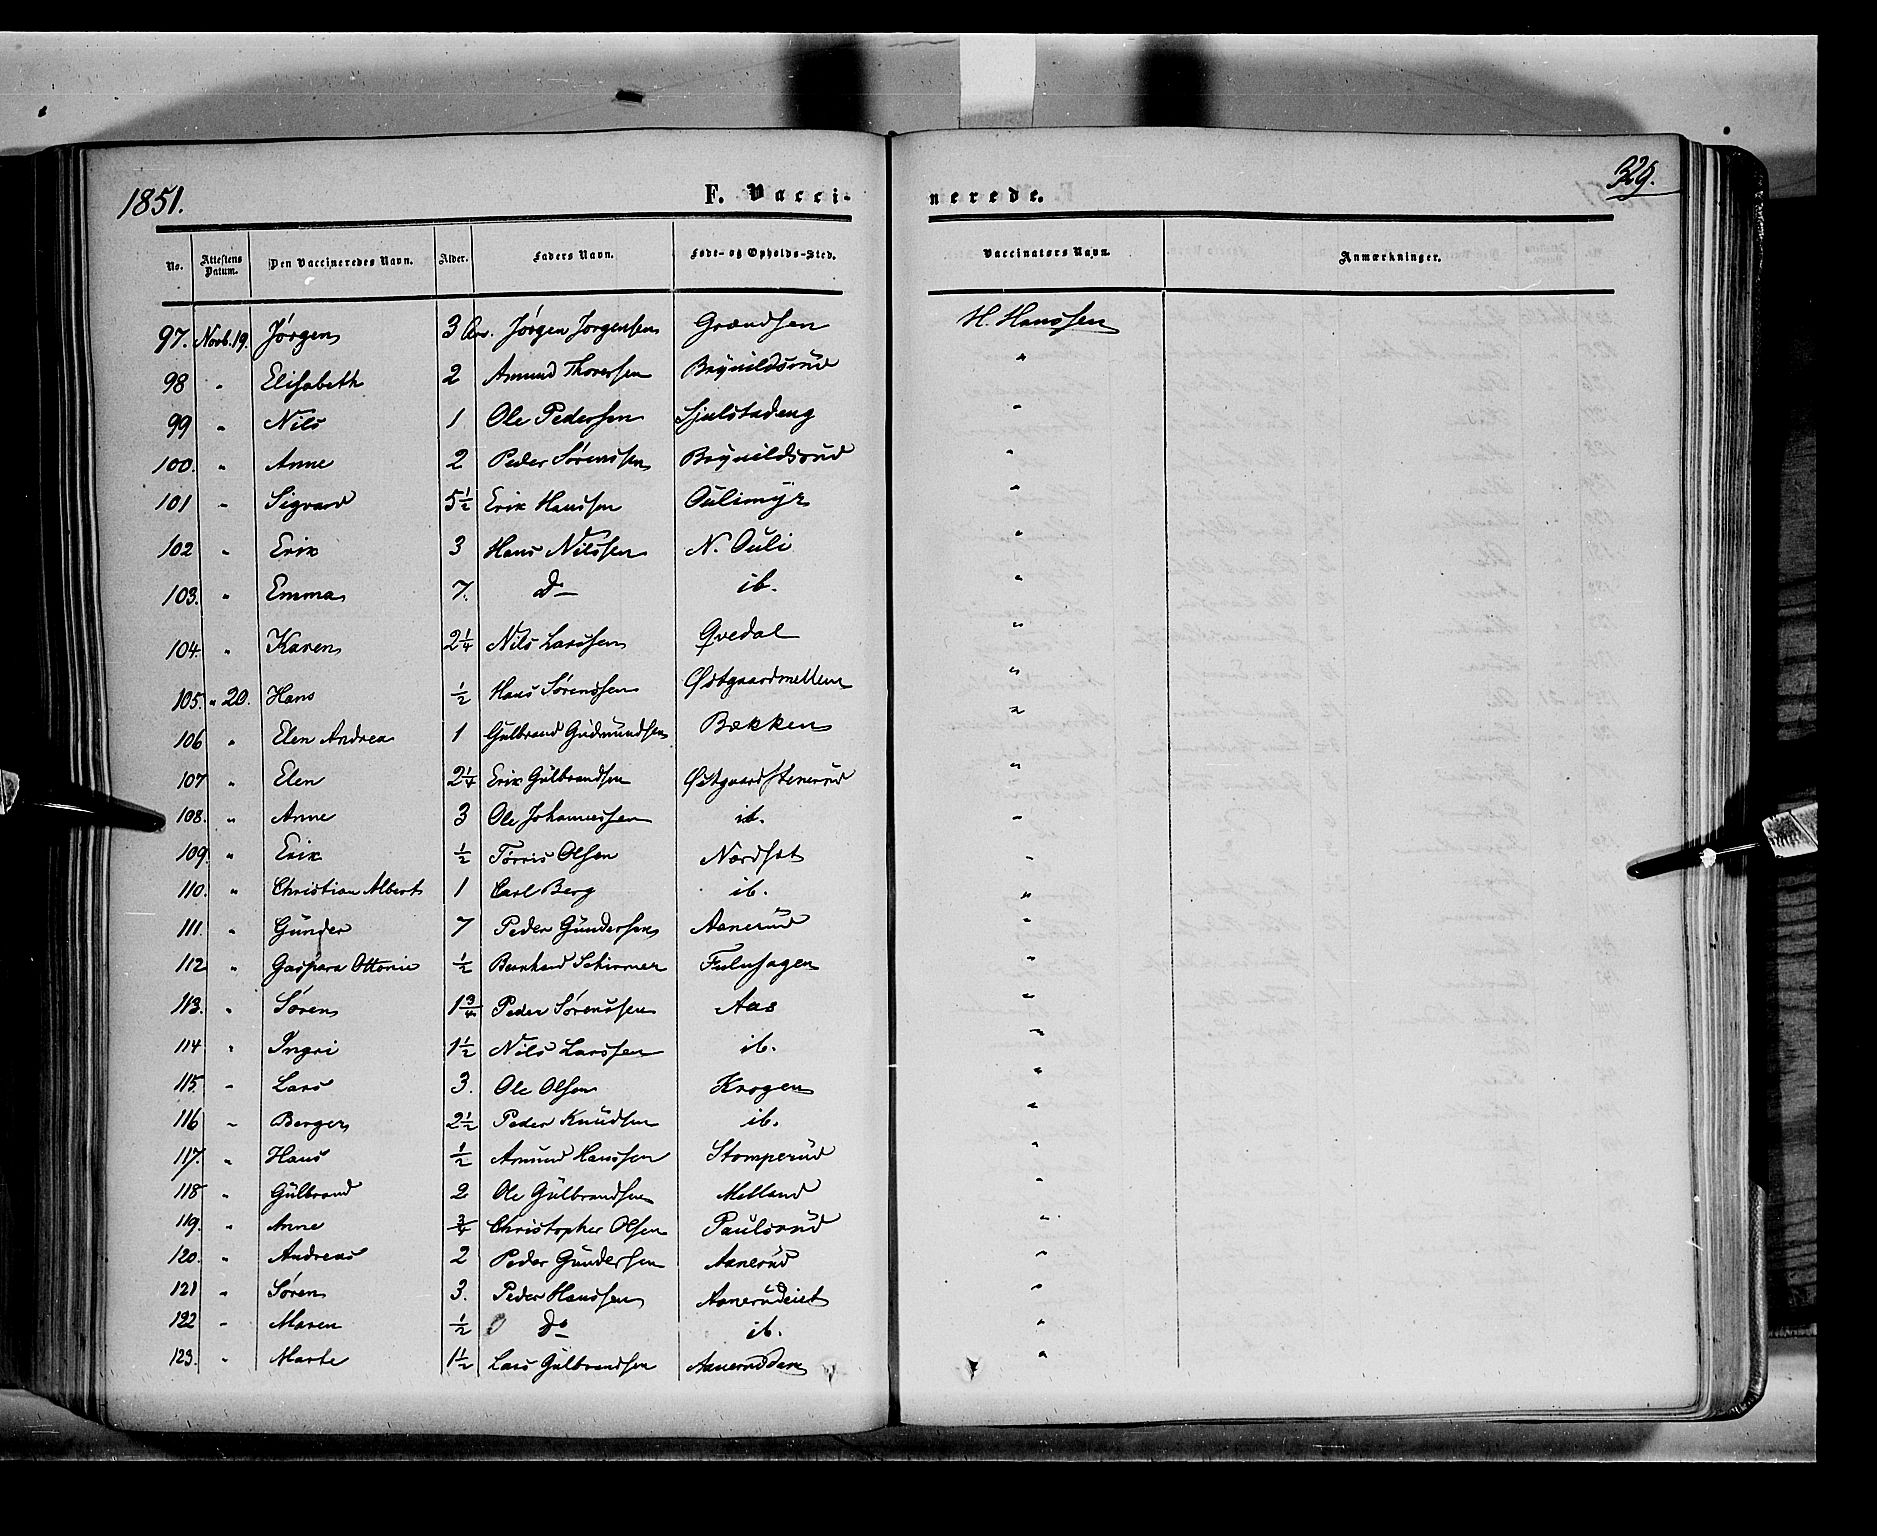 1851. F. Vacci- nerede. 329.
No. Attestens Datum. Den Vaccineredes Navn. Alder. Faders Navn. Føde- og Opholds-Sted. Vaccinators Navn. Anmærkninger.
97. Novb. 19. Jørgen 3 Aar. Jørgen Jorgensen Grændsen H. Hanssen
98 " Elisabeth 2 Amund Thoressen Brynildsrud "
99 " Nils 1 Ole Pedersen Sjulstadeng "
100. " Anne 2 Peder Sørenssen Brynildsrud "
101 " Sigvard 5½ Erik Hanssen Oulimyr "
102 " Erik 3 Hans Nilssen N. Ouli "
103. " Emma 7. Do ib. "
104. " Karen 2¼ Nils Larssen Qvedal "
105. " 20. Hans ½ Hans Sørenssen Østgaardmellem "
106 " Elen Andrea 1 Gulbrand Gudmundsen Bækken "
107 " Elen 2¼ Erik Gulbrandsen Østgaardstenerud "
108. " Anne 3 Ole Johannessen ib. "
109. " Erik ½ Tørris Olsen Nordset "
110. " Christian Albert 1 Carl Berg ib. "
111. " Gunder 7 Peder Gundersen Aanerud "
112 " Gaspara Ottonie ½ Bernhard Schirmer Fuluhagen "
113. " Søren 1¾ Peder Sørenssen Aas "
114 " Ingri 1½ Nils Larssen ib. "
115. " Lars 3. Ole Olsen Krogen "
116 " Berger 2½ Peder Knudsen ib. "
117. " Hans ½ Amund Hanssen Stomperud "
118 " Gulbrand 2 Ole Gulbrandsen Melland "
119. " Anne ¾ Christopher Olsen Paulsrud "
120. " Andreas 2 Peder Gundersen Aanerud "
121 " Søren 3. Peder Hanssen Aanerudeiet "
122 " Maren ½ Do ib. "
123. " Marte 1½ Lars Gulbrandsen "